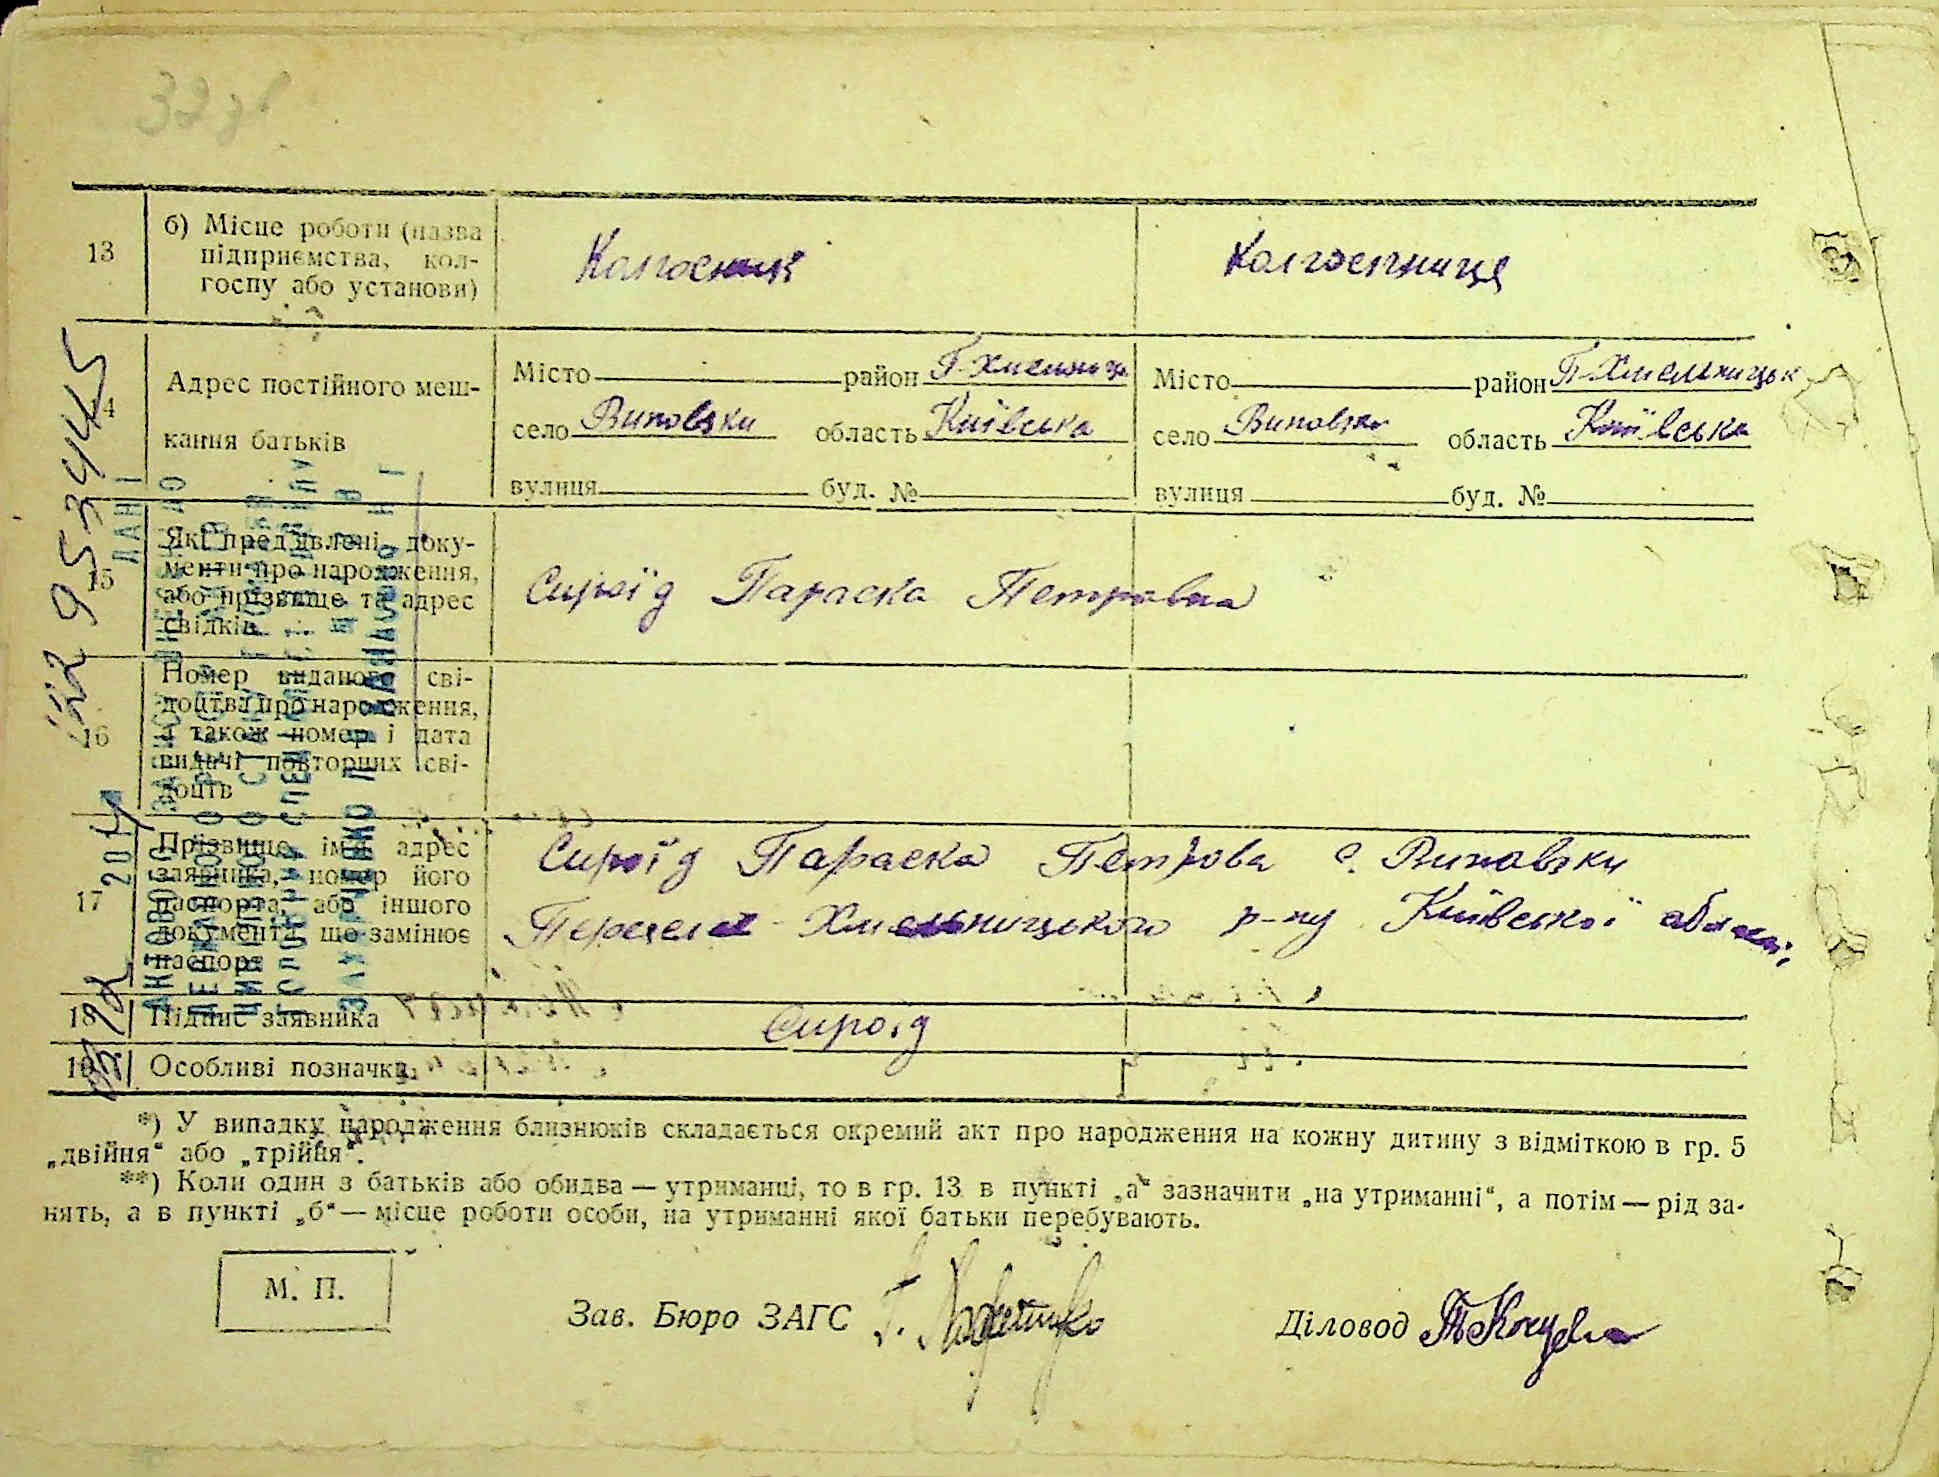 13
б) Місце роботи (назва
підприємства, кол-
госпу або установи)
Колгоспник
Колгоспниця
Адрес постійного меш-
кання батьків
Місто район П-Хмельниць
село Виповзки область Київська
вулиця буд. №
Місто район П-Хмельницьк
село Виповзки область Київська
вулиця буд. №
15
Які пред'явлені доку-
менти про народження,
або прізвище та адрес
свідків
Сироїд Параска Петровна
16
Номер виданого сві-
доцтва про народження,
а також номер і дата
видачі повторних сві-
доцтв
17
Прізвище, ім'я адрес
заявника, номер його
паспорта, або іншого
документа, що замінює
паспорт
Сироїд Параска Петрова с. Виповзки
Переяслав-Хмельницького р-ну Київської області
18
Підпис заявника
Сироїд
19
Особливі позначки
*) У випадку народження близнюків складається окремий акт про народження на кожну дитину з відміткою в гр. 5
„двійня“ або „трійня“.
**) Коли один з батьків або обидва — утриманці, то в гр. 13 в пункті „а“ зазначити „на утриманні“, а потім — рід за-
нять, а в пункті „б“ — місце роботи особи, на утриманні якої батьки перебувають.
М. П.
Зав. Бюро ЗАГС
Діловод